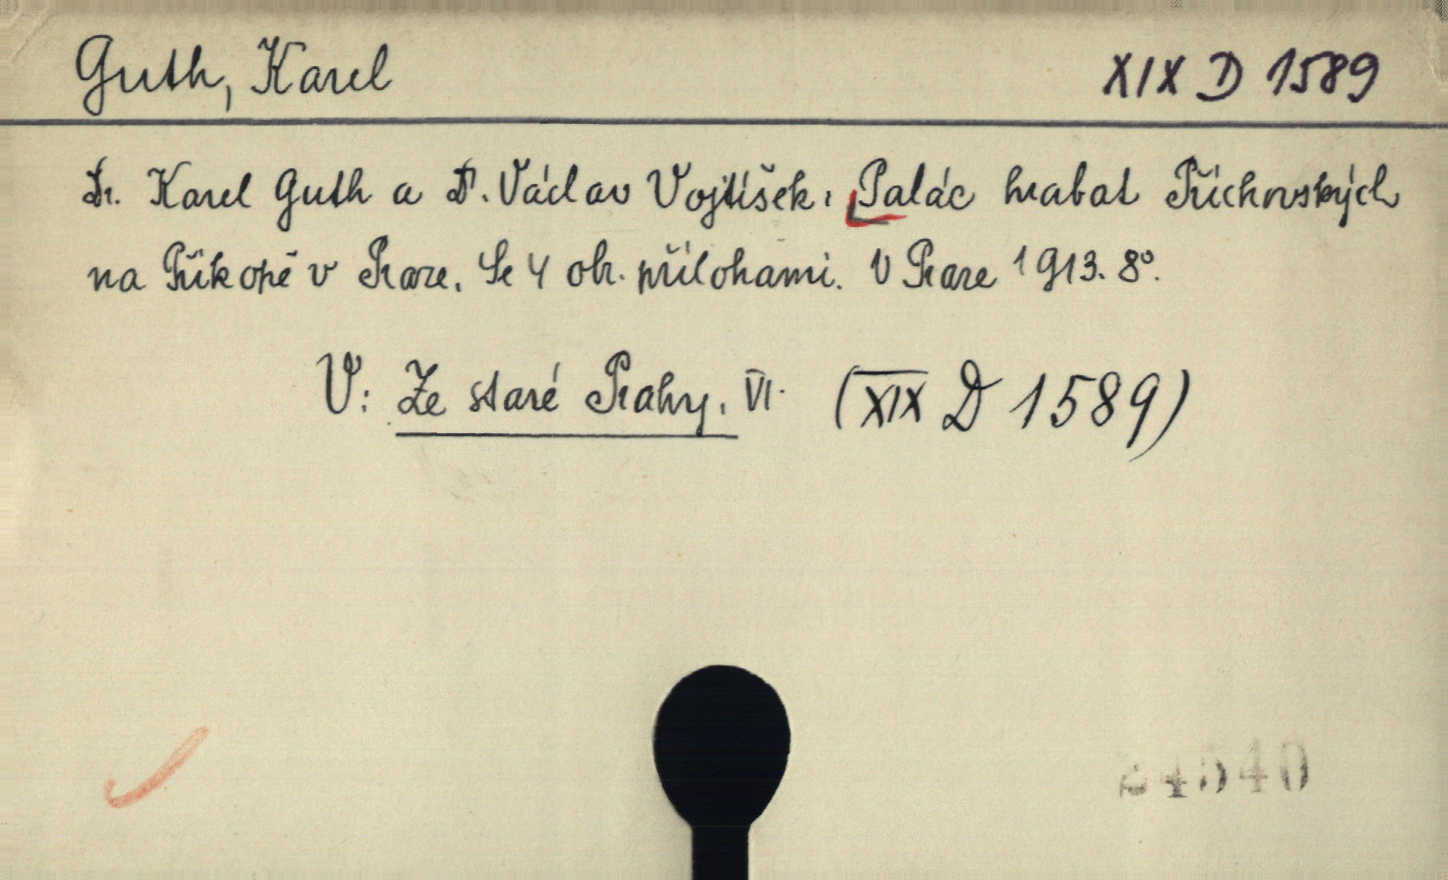 Guth, Karel
XIX D 1589
Dr. Karel Guth a Dr. Václav Vojtíšek: Palác hrabat Příchovských
na Příkopě v Praze. Se 4 obr. přílohami. V Praze 1913. 8°.
V: Ze staré Prahy. VI. (XIX D 1589)